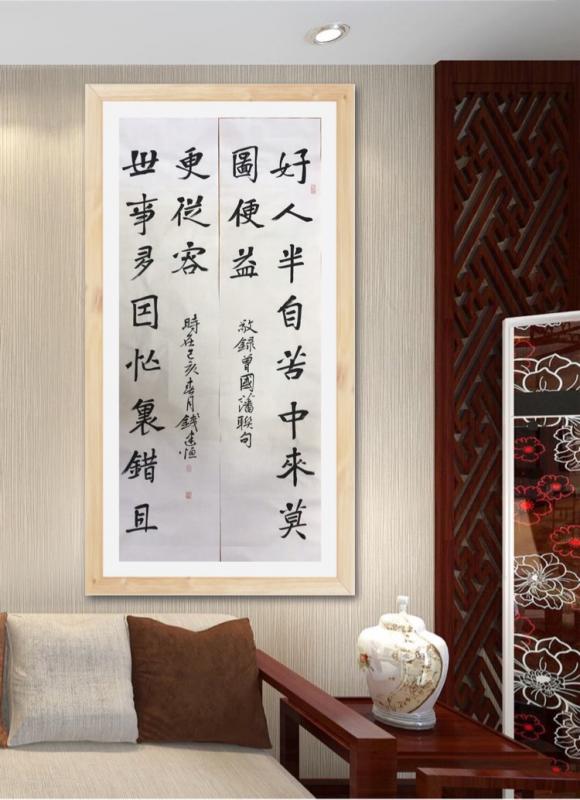 好人半自苦中來莫
圖便益
敬錄曾國潘聯句
世事多因忙裏錯且
更從容
時在己亥春月錢建恒